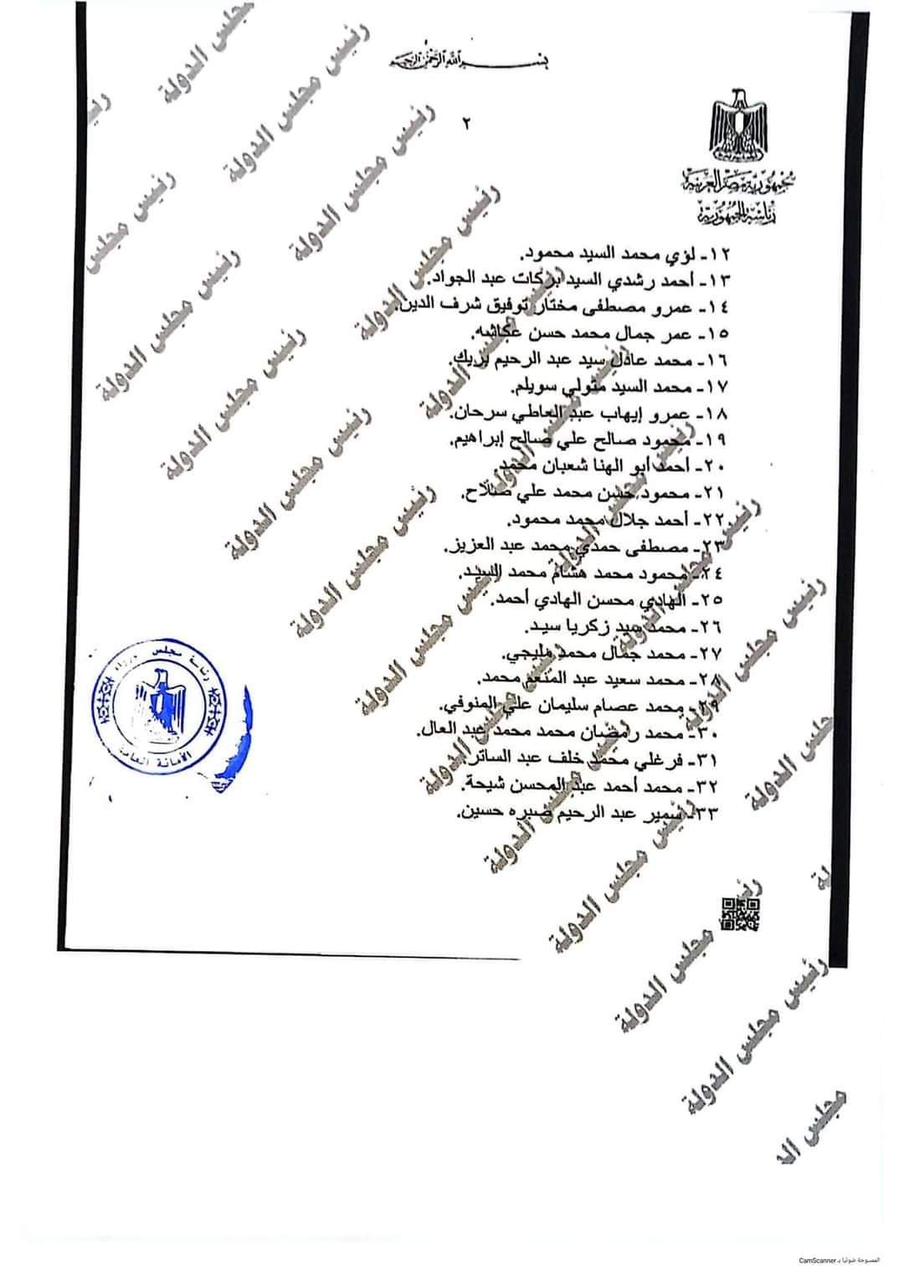 بسم الله الرحمن الرحيم
٢
جمهورية مصر العربية
رئاسة الجمهورية
١٢- لؤي محمد السيد محمود.
١٣- أحمد رشدي السيد بركات عبد الجواد.
١٤- عمرو مصطفى مختار توفيق شرف الدين.
١٥- عمر جمال محمد حسن عكاشه.
١٦- محمد عادل سيد عبد الرحيم بريك.
١٧- محمد السيد متولي سويلم.
١٨- عمرو إيهاب عبد العاطي سرحان.
١٩- محمود صالح علي صالح إبراهيم.
٢٠- أحمد أبو الهنا شعبان محمد.
٢١- محمود حسن محمد علي صلاح.
٢٢- أحمد جلال محمد محمود.
٢٣- مصطفى حمدي محمد عبد العزيز.
٢٤- محمود محمد هشام محمد السيد.
٢٥- الهادي محسن الهادي أحمد.
٢٦- محمد سيد زكريا سيد.
٢٧- محمد جمال محمد مليجي.
٢٨- محمد سعيد عبد المنعم محمد.
محمد عصام سليمان علي المنوفي.
٣٠- محمد رمضان محمد محمد عبد العال.
٣١- فرغلي محمد خلف عبد الساتر.
٣٢- محمد أحمد عبد المحسن شيحة.
٣٣- سمير عبد الرحيم صبره حسين.
رئاسة مجلس
الأمانة العامة
رئيس مجلس الدولة
الممسوحة ضوئيا بـ CamScanner